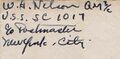 W. H. Nelson AM 2/c
U.S.S. SC 1017
c/o Postmaster
New York, City.